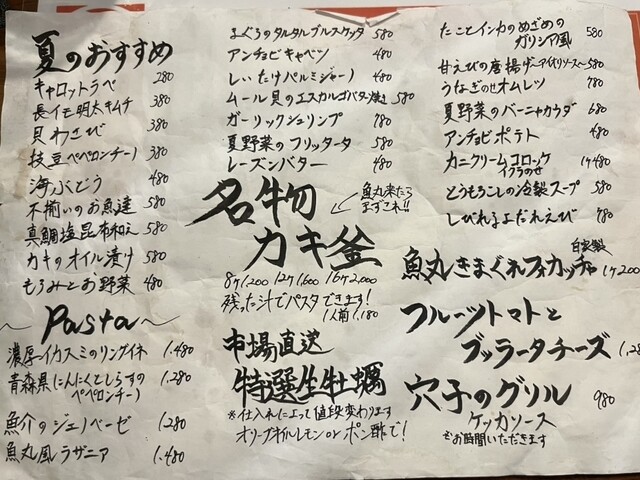 夏のおすすめ
キャロットラペ 280
長イモ明太キムチ 380
貝わさび 380
枝豆ペペロンチーノ 380
海ぶどう 480
不揃いのお魚達 580
真鯛塩昆布和え 580
カキのオイル漬け 580
もろみとお野菜 480
〜Pasta〜
濃厚イカスミのリングイネ 1,480
青森県にんにくとしらすの
ペペロンチーノ 1,280
魚介のジェノベーゼ 1280
魚丸風ラザニア 1,480
まぐろのタルタルブルスケッタ 580
アンチョビキャベツ 480
しいたけパルミジャーノ 480
ムール貝のエスカルゴバター焼き 580
ガーリックシュリンプ 780
夏野菜のフリッタータ 580
レーズンバター 480
名物
カキ釜
魚丸来たら
まずこれ!!
8ケ1,200 12ケ1,600 16ケ2,000
残った汁でパスタできます!
1人前1,180
市場直送
特選生牡蠣
※仕入れによって値段変わります
オリーブオイルレモンorポン酢で!
たことインカのめざめの
ガリシア風 580
甘えびの唐揚げ〜アイオリソース〜 580
うなぎのせオムレツ 780
夏野菜のバーニャカウダ 680
アンチョビポテト 480
カニクリームコロッケ
イクラのせ 1ケ480
とうもろこしの冷製スープ 580
しびれるよだれえび 780
自家製
魚丸きまぐれフォカッチャ 1ケ200
フルーツトマトと
ブッラータチーズ
穴子のグリル 980
ケッカソース
お時間いただきます